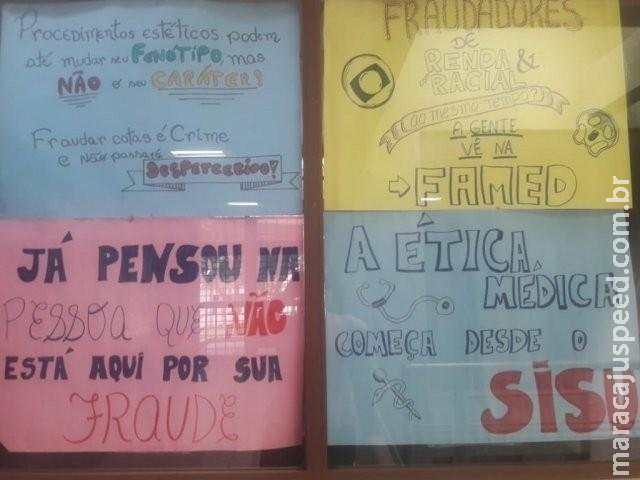 Procedimentos estéticos podem
até mudar seu FENÓTIPO, mas
NÃO o seu CARÁTER!
Fraudar cotas é Crime
e não passará
DESPERCEBIDO!
FRAUDADORES
DE
RENDA &
RACIAL
(ao mesmo tempo?)
A GENTE
VÊ NA
FAMED
JÁ PENSOU NA
PESSOA QUE NÃO
ESTÁ AQUI POR SUA
FRAUDE
A ÉTICA
MÉDICA
COMEÇA DESDE O
SISU
maracajuspeed.com.br